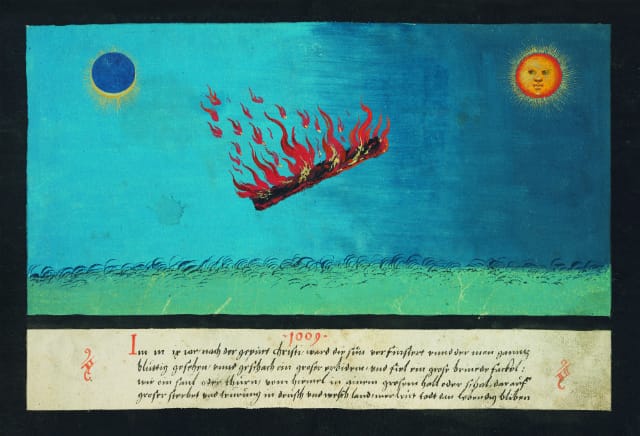 ·1009·
Im m ix iar nach der gepürt christi ward die sün verfinstert vnnd der mon ganntz
blüttig gesehen vnnd geschach ein groser erdbidem vnd fiel ein grose brinnende fackel:
wie ein saul oder thurn vom himel in ainem grosem hall oder schal, dar auff
groser sterbet vnd teurung in deutsch vnd welsch land mer leut todt an lebendig bliben